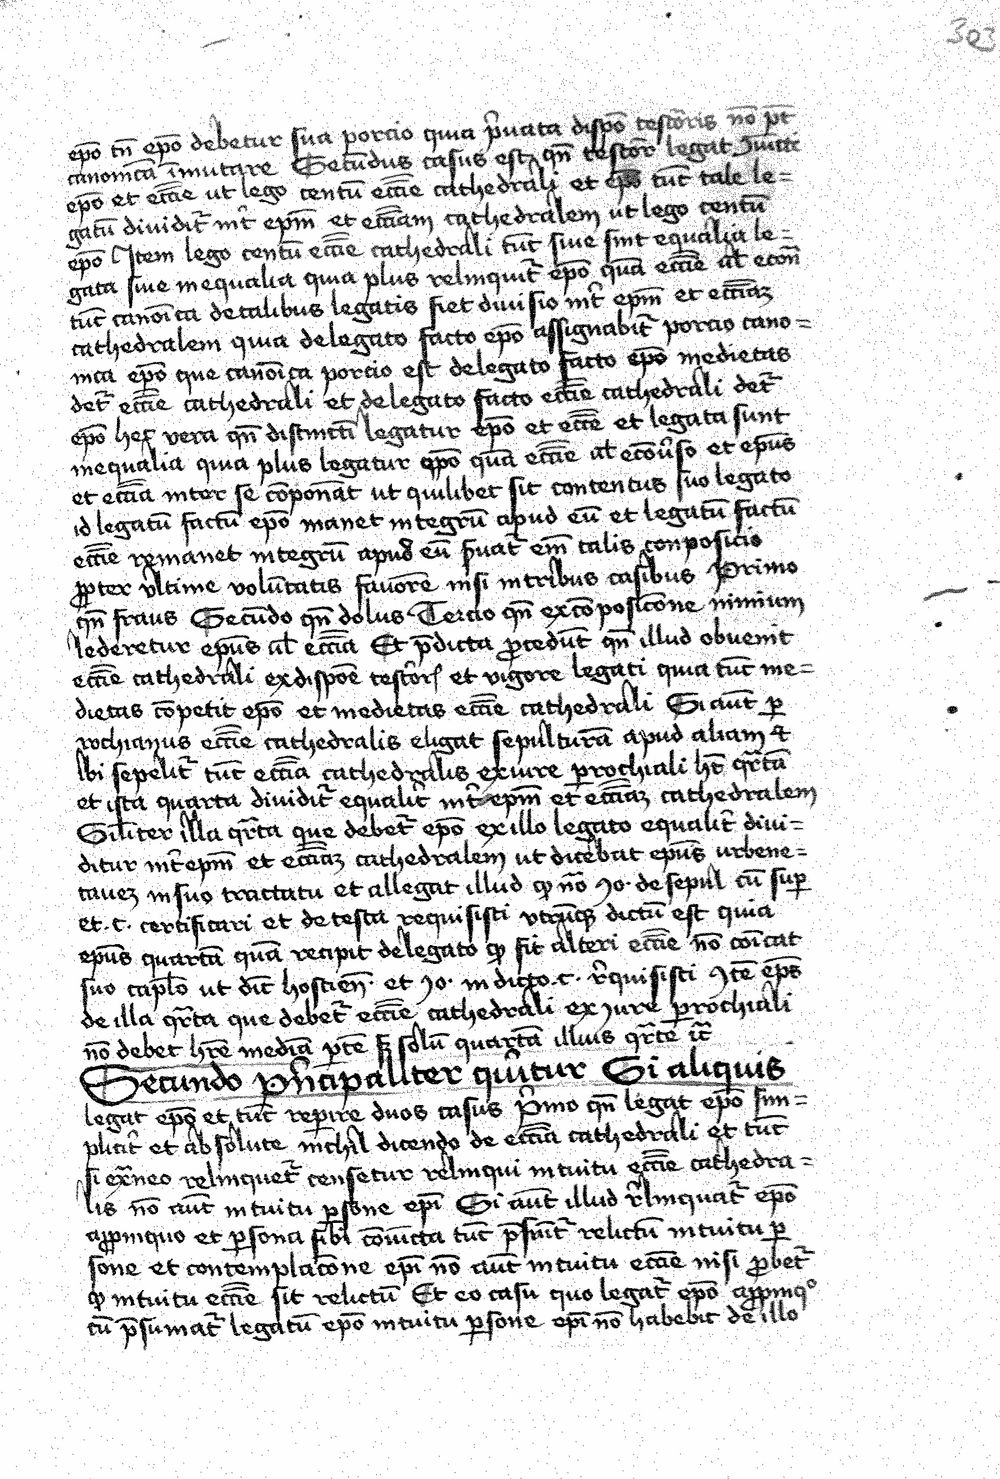 303
epō tn̄ epō debetur sua porcio quia p̄uata dispō testōris nō pt̄
canonicā īmutare Secundus casus est qn̄ testōr legat
epō et ecclīe ut lego centū ecclīe cathedrali et epō tūc tale le=
gatū diuidit᷑ int᷑ epm̄ et eccīam cathedralem ut lego centū
epō Item lego centū ecclīe cathedrali tūc siue sint equalia le=
gata siue inequalia quia plus relinquit᷑ epō quā ecclīe ul̄ econ̄
tūc canōica de talibus legatis fiet diuisio int᷑ epm̄ et eccīaz
cathedralem quia de legato facto epō assignabit᷑ porcio cano=
nica epō que canōica porcio est de legato facto epō medietas
det᷑ ecclīe cathedrali et de legato facto ecclīe cathedrali det᷑
epō hec vera qn̄ distincti legatur epō et ecclīe et legata sunt
inequalia quia plus legatur epō quā ecclīe ul̄ econūso et epūs
et eccīa inter se cōponāt ut quilibet sit contentus suo legato
id legatū factū epō manet integrū apud eū et legatū factū
ecclīe remanet integrū apud eū p̄uat᷑ em̄ talis conposicio
ꝓpter vltime volūtatis fauorē nisi in tribus casibus Primo
qn̄ fraus Secundo qn̄ dolus Tercio qn̄ ex cōposicōne nimium
lederetur epūs ul̄ eccīa Et p̄dicta ꝓcedūt qn̄ illud obuenit
ecclīe cathedrali ex dispōe testōris et vigore legati quia tūc me=
dietas cōpetit epō et medietas ecclīe cathedrali Si aūt ꝑ
rochianus ecclīe cathedralis eligat sepulturā apud aliam et
Ibi sepelit᷑ tūc eccīa cathedralis ex iure ꝑrochiali ht̄ qr̄tā
et ista quarta diuidit᷑ equalit᷑ int᷑ epm̄ et eccīaz cathedralem
Silīter illa qr̄ta que debet᷑ epō ex illo legato equalit᷑ diui=
ditur int᷑ epm̄ et eccīaz cathedralem ut dicebat epūs urbene=
tauez in suo tractatu et allegat illud ꝙ nō Jo. de sepul cū suꝑ
et .c. certificari et de testa requisisti vtrūqꝫ dictū est quia
epūs quartā quā recipit de legato ꝙ fit alteri ecclīe nō cōicat
suo caplō ut dic̄ hostien̄. et Jo. in dicto .c. r̄quisisti Itē ep̄s
de illa qr̄ta que debet᷑ ecclīe cathedrali ex Jure ꝑrochiali
nō debet hr̄e mediā ꝑtē sꝫ solū quartā illius qr̄te ic᷑
Secundo pn̄cipaliter querit᷑ur Si aliquis
legat epō et tūc reꝑire duos casus p̄mo qn̄ legat epō sim=
plicit᷑ et absolute nichil dicendo de eccīa cathedrali et tūc
si ex̄neo relinquet᷑ censetur relinqui intuitu ecclīe cathedra=
lis nō aūt intuitu ꝑsone epī Si aūt illud r̄linquat᷑ epō
aꝓpinquo et ꝑsona sibi cōiūcta tūc p̄sumit᷑ relictū intuitu ꝑ
sone et contemplacōne epī nō aūt intuitu ecclīe nisi ꝓbet᷑
ꝙ intuitu ecclīe sit relictū Et eo casu quo legat᷑ epō aꝓpinqº
cū p̄sumat᷑ legatū epō intuitu ꝑsone epī nō habebit de illo